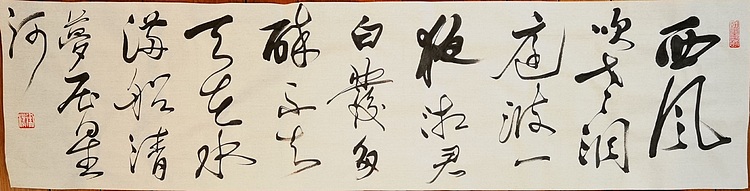 西風
吹老洞
庭波一
夜湘君
白發多
醉不知
天在水
滿船清
夢压星
河